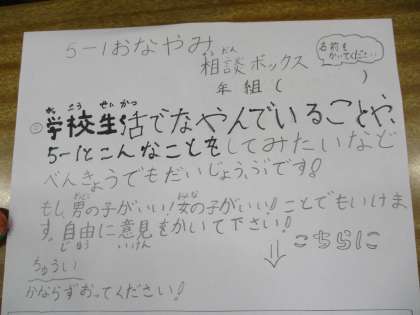 5-1おなやみ
相談ボックス
そうだん
名前も
かいてください
年 組( )
がっこうせいかつ
◎学校生活でなやんでいることや、
5-1とこんなことをしてみたいなど
べんきょうでもだいじょうぶです!
おとこ おんな
もし、男の子がいい!女の子がいい!ことでもいけま
す。自由に意見をかいて下さい!
じゆう いけん
こちらに
ちゅうい
かならずおってください!